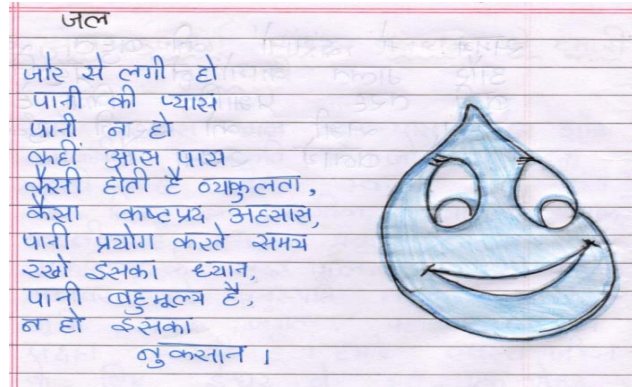 जल
जोर से लगी हो
पानी की प्यास
पानी ना हो
कहीं आस पास
कैसी होती है व्याकुलता,
कैसा कष्टप्रद अहसास,
पानी प्रयोग करते समय
रखो इसका ध्यान,
पानी बहुमूल्य है,
न हो इसका
नुकसान ।